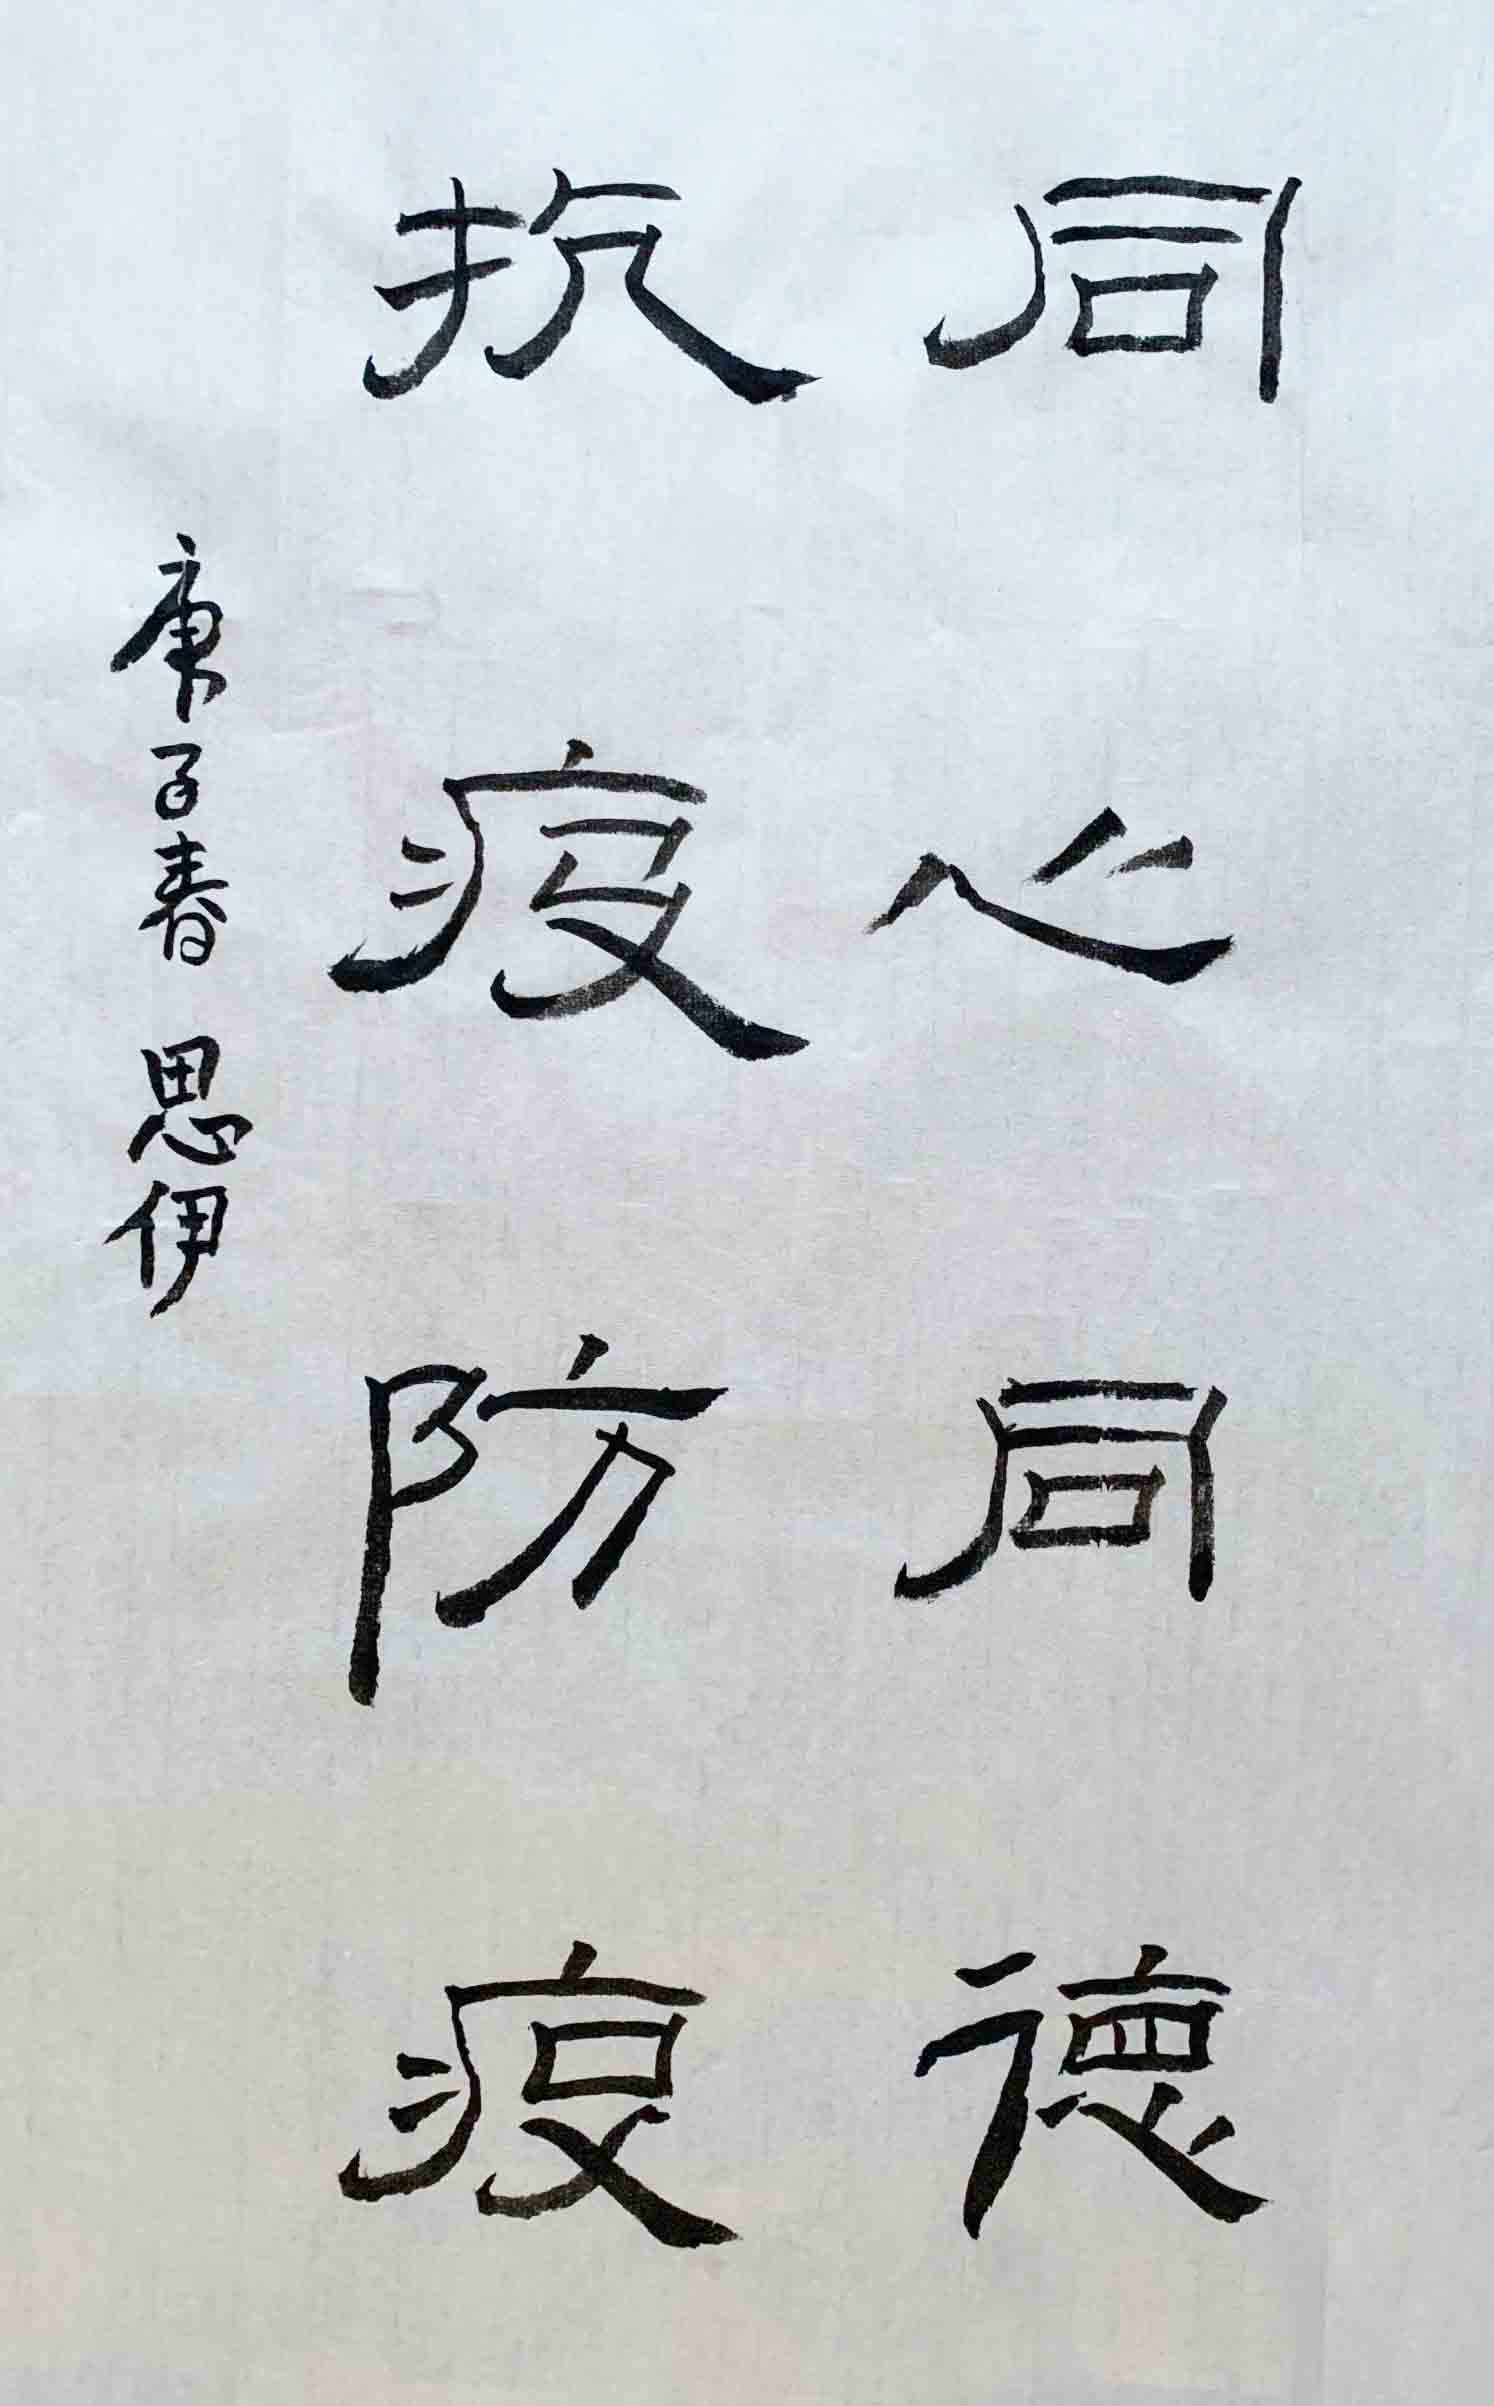 同心同德
抗疫防疫
庚子春 思伊